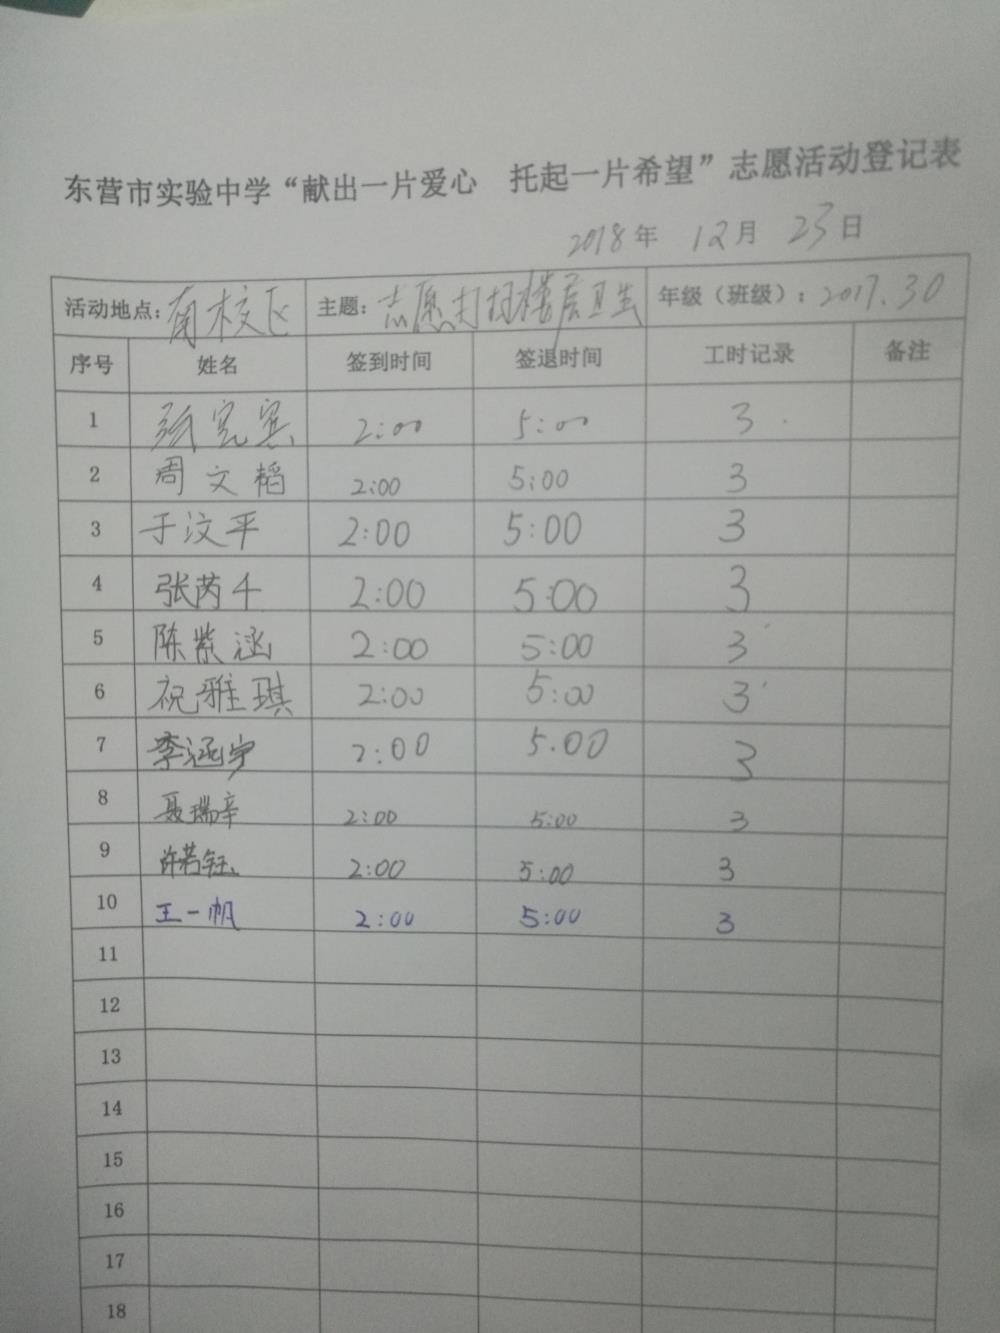 东营市实验中学“献出一片爱心 托起一片希望”志愿活动登记表
2018年 12月 23日
活动地点：南校区 主题：志愿打扫楼层卫生 年级（班级）：2017.30
序号 姓名 签到时间 签退时间 工时记录 备注
1 张宪宾 2:00 5:00 3
2 周文韬 2:00 5:00 3
3 于汶平 2:00 5:00 3
4 张芮千 2:00 5:00 3
5 陈紫涵 2:00 5:00 3
6 祝雅琪 2:00 5:00 3
7 李涵宇 2:00 5.00 3
8 聂瑞辛 2:00 5:00 3
9 许若钰 2:00 5:00 3
10 王一帆 2:00 5:00 3
11
12
13
14
15
16
17
18